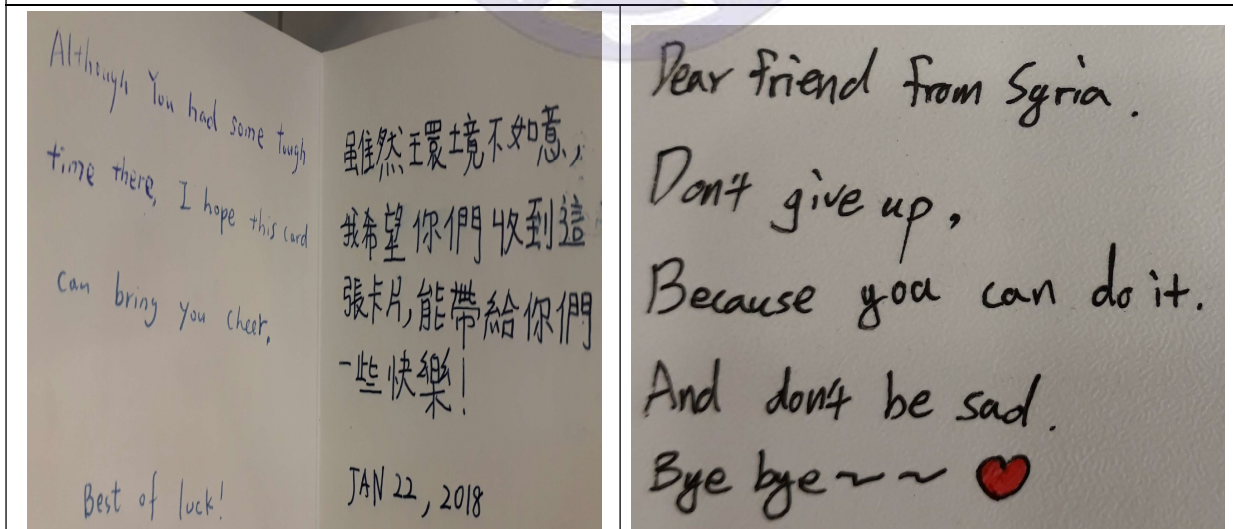 Although You had some tough
time there, I hope this card
can bring you cheer.
Best of luck!
雖然環境不如意,
我希望你們收到這
張卡片,能帶給你們
一些快樂!
JAN 22, 2018
Dear friend from Syria.
Don't give up,
Because you can do it.
And don't be sad.
Bye bye~~ ❤